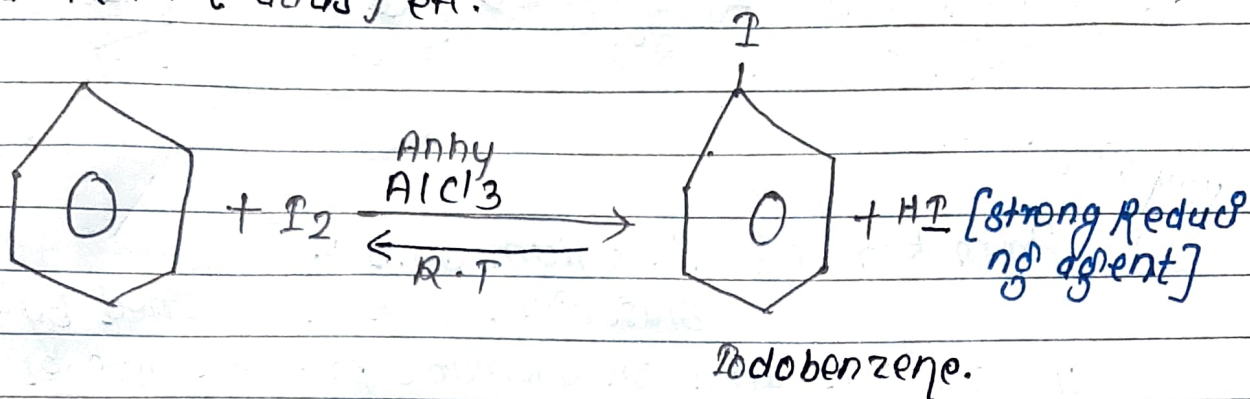 I
Anhy
AlCl3
+ I2
+ HI [strong Reduci
ng agent]
R.T
Iodobenzene.